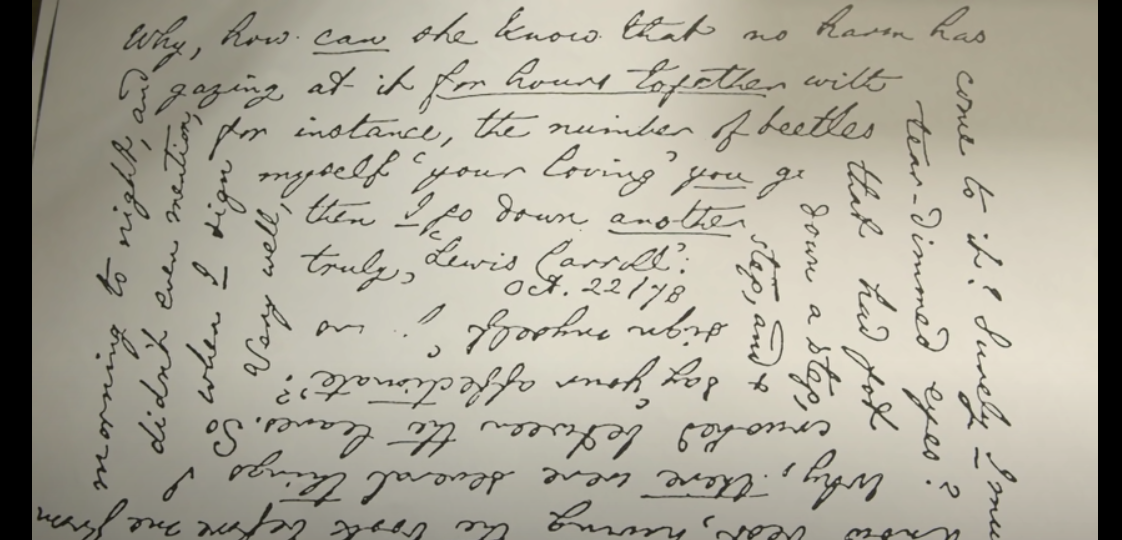 Why, how can she know that no harm has
come to it? Surely I
know best, having the book before me from
morning to night, and
gazing at it for hours together with
tear-dimmed eyes?
Why, there were several things I
didn't even mention,
for instance, the number of beetles
that had got
crushed between the leaves. So
when I sign
myself 'your loving' you go
down a step, &
say 'your affectionate'.
Very well,
then I go down another
step, and
sign myself
truly, Lewis Carroll'.
Oct. 22/78